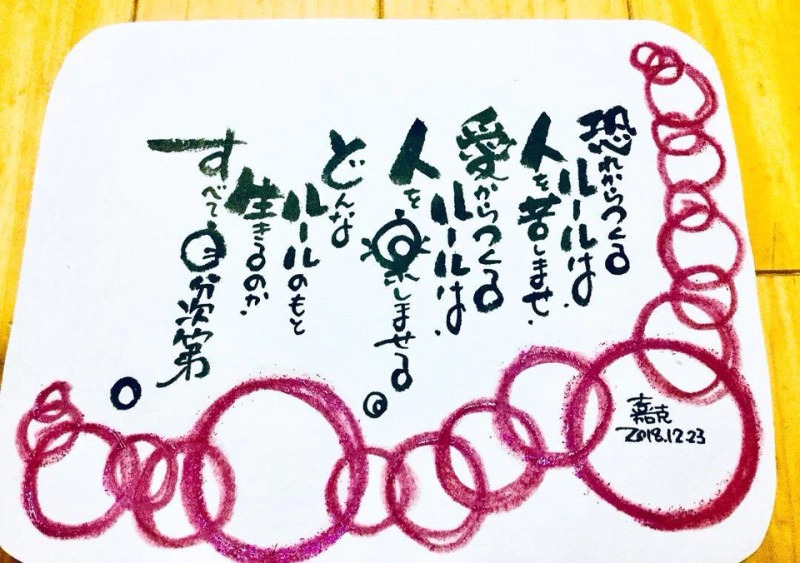 恐れからつくる
ルールは、
人を苦しませ、
愛からつくる
ルールは、
人を楽しませる。
どんな
ルールのもと
生きるのか、
すべて自分次第。
嘉克
2018.12.23